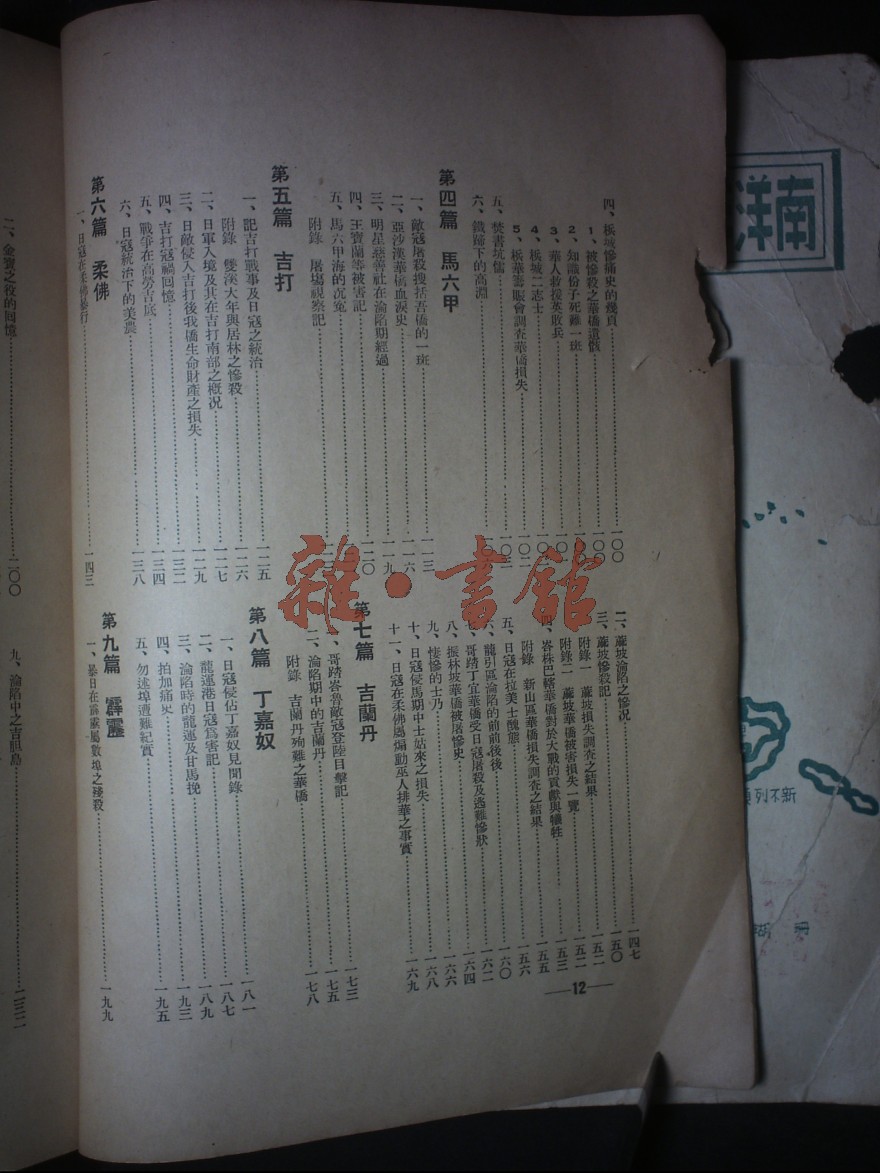 四、檳城慘痛史的幾頁……一〇〇
1、被慘殺之華僑遺骸……一〇〇
2、知識份子死難一班
3、華人救援英敗兵
4、檳城二志士
5、檳華籌賑會調查華僑損失……一〇二
五、焚書坑儒……一〇三
六、鐵蹄下的高淵
第四篇 馬六甲
一、敵寇屠殺搜括吾僑的一班……一一三
二、亞沙漢華僑血淚史……一一六
三、明星慈善社在淪陷期經過……一一九
四、王寶蘭等被害記……一二〇
五、馬六甲海的沉寃
附錄 屠場視察記
第五篇 吉打
一、記吉打戰事及日寇之統治……一二五
附錄 雙溪大年與居林之慘殺……一二六
二、日軍入境及其在吉打南部之概況……一二七
三、日敵侵入吉打後我僑生命財產之損失……一二九
四、吉打寇禍回憶……一三二
五、戰爭在高勞吉底……一三四
六、日寇統治下的美農……一三八
第六篇 柔佛
一、日寇在柔佛暴行……一四三
二、蔴坡淪陷之慘况……一四七
三、蔴坡慘殺記……一五〇
附錄一 蔴坡損失調查之結果……一五二
附錄二 蔴坡華僑被害損失一覽……一五二
四、峇株巴轄華僑對於大戰的貢獻與犧牲……一五三
附錄 新山區華僑損失調查之結果……一五五
五、日寇在拉美士醜態……一五六
六、龍引區淪陷的前前後後……一六〇
七、哥踏丁宜華僑受日寇屠殺及逃難慘狀……一六二
八、振林坡華僑被屠慘史……一六四
九、悽慘的士乃……一六六
十、日寇侵馬期中士姑來之損失……一六八
十一、日寇在柔佛屬煽動巫人排華之事實……一六九
第七篇 吉蘭丹
一、哥踏峇魯敵寇登陸目擊記……一七三
二、淪陷期中的吉蘭丹……一七五
附錄 吉蘭丹殉難之華僑……一七八
第八篇 丁嘉奴
一、日寇侵佔丁嘉奴見聞錄……一八一
二、龍運港日寇爲害記……一八七
三、淪陷時的龍運及甘馬挽……一八九
四、拍加痛史……一九三
五、勿述埠遭難紀實……一九五
第九篇 霹靂
一、暴日在霹靂屬數埠之殘殺……一九九
—12—
二、金寶之役的回憶……二〇〇
九、淪陷中之吉胆島……二三二
南洋
雜·書館